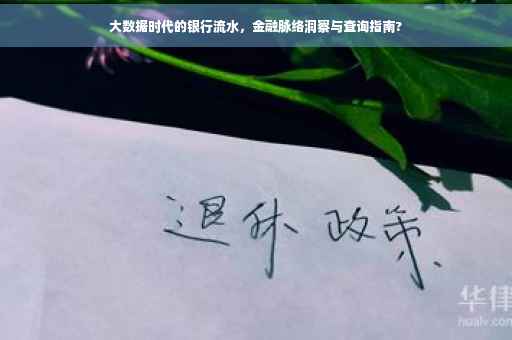 大数据时代的银行流水，金融脉络洞察与查询指南?
退休 政策
华律
hualv.com